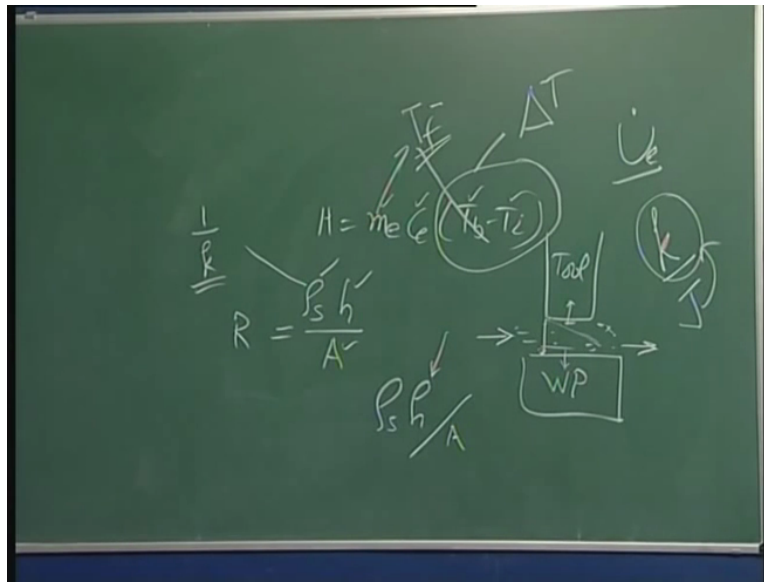 T_f ΔT
U̇_e
H = ṁ_e C_e (T_b - T_i)
1/k
k
J
Tool
R = ρ_s h / A
WP
ρ_s h / A